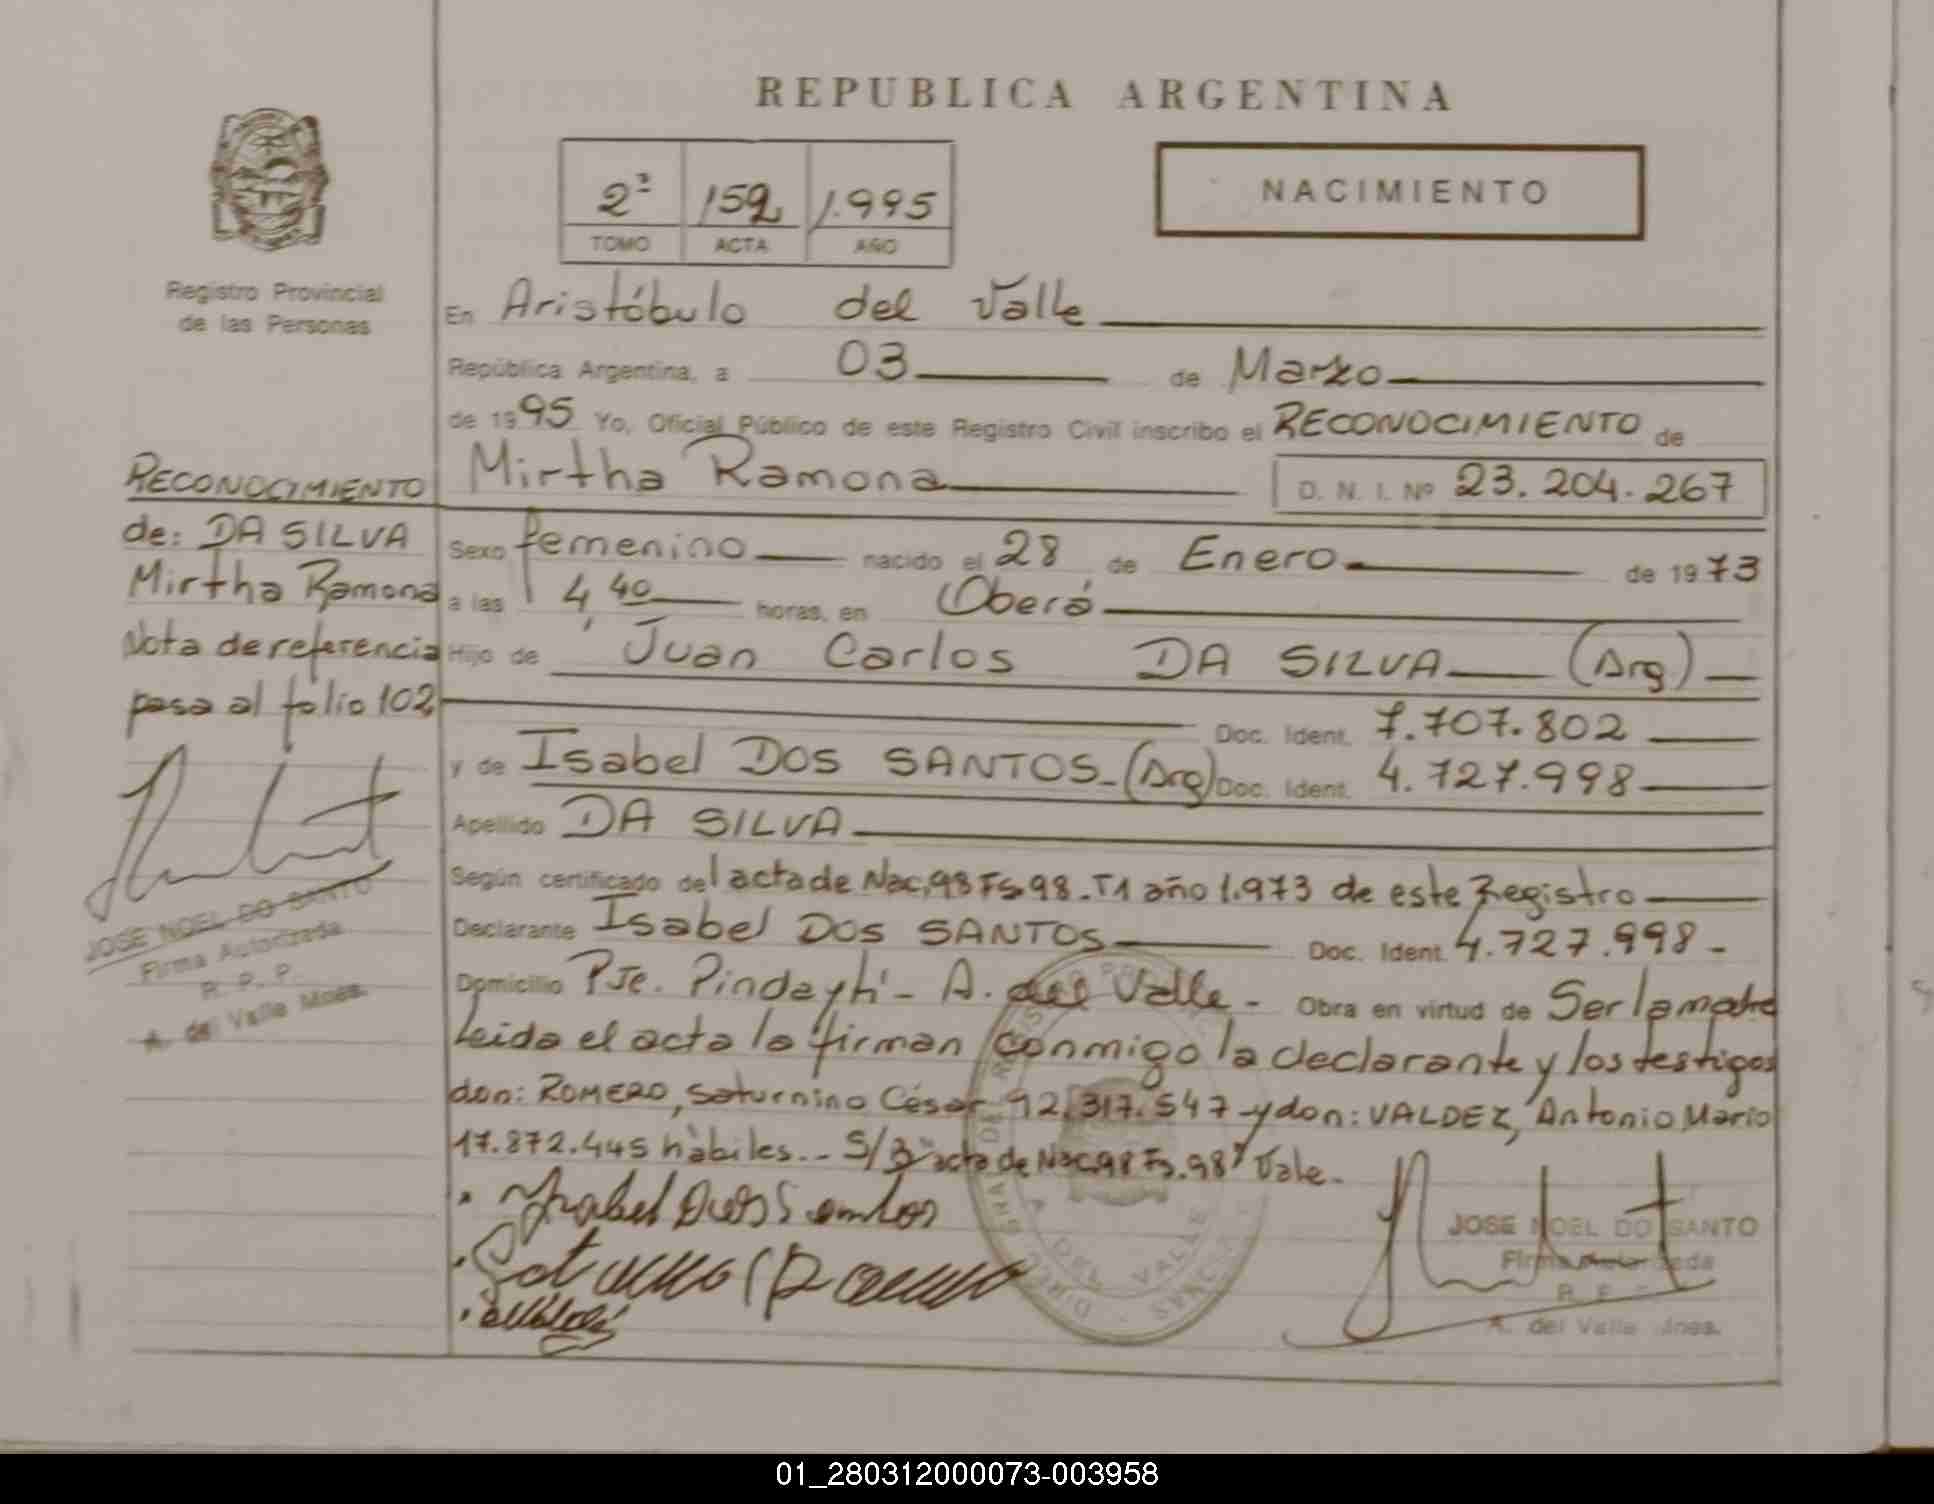 REPUBLICA ARGENTINA
2º 159 1.995
TOMO ACTA AÑO
NACIMIENTO
Registro Provincial
de las Personas
En Aristóbulo del Valle
República Argentina, a 03 de Marzo
de 1995 Yo, Oficial Público de este Registro Civil inscribo el RECONOCIMIENTO de
Mirtha Ramona D. N. I. Nº 23.204.267
Sexo femenino nacido el 28 de Enero de 1973
a las 4,40 horas, en Oberá
Hijo de Juan Carlos DA SILVA (Arg)
Doc. Ident. 7.707.802
y de Isabel DOS SANTOS - (Arg) Doc. Ident. 4.727.998
Apellido DA SILVA
Según certificado del acta de Nac. 98 Fs 98 - T1 año 1.973 de este Registro
Declarante Isabel DOS SANTOS Doc. Ident. 4.727.998 -
Domicilio Pje. Pindaytí - A. del Valle - Obra en virtud de Ser la madre
Leida el acta la firman conmigo la declarante y los testigos
don: ROMERO, Saturnino César 92.317.547 y don: VALDEZ, Antonio Mario
17.872.445 hàbiles.- S/B "acta de Nac. 98 Fs. 98" Vale.-
Isabel Dos Santos
JOSE NOEL DO SANTO
Firma Autorizada
R. P. P.
A. del Valle Mnes.
RECONOCIMIENTO
de: DA SILVA
Mirtha Ramona
Nota de referencia
pasa al folio 102
JOSE NOEL DO SANTO
Firma Autorizada
R. P. P.
A. del Valle Mnes.
DEL VALLE
01_280312000073-003958